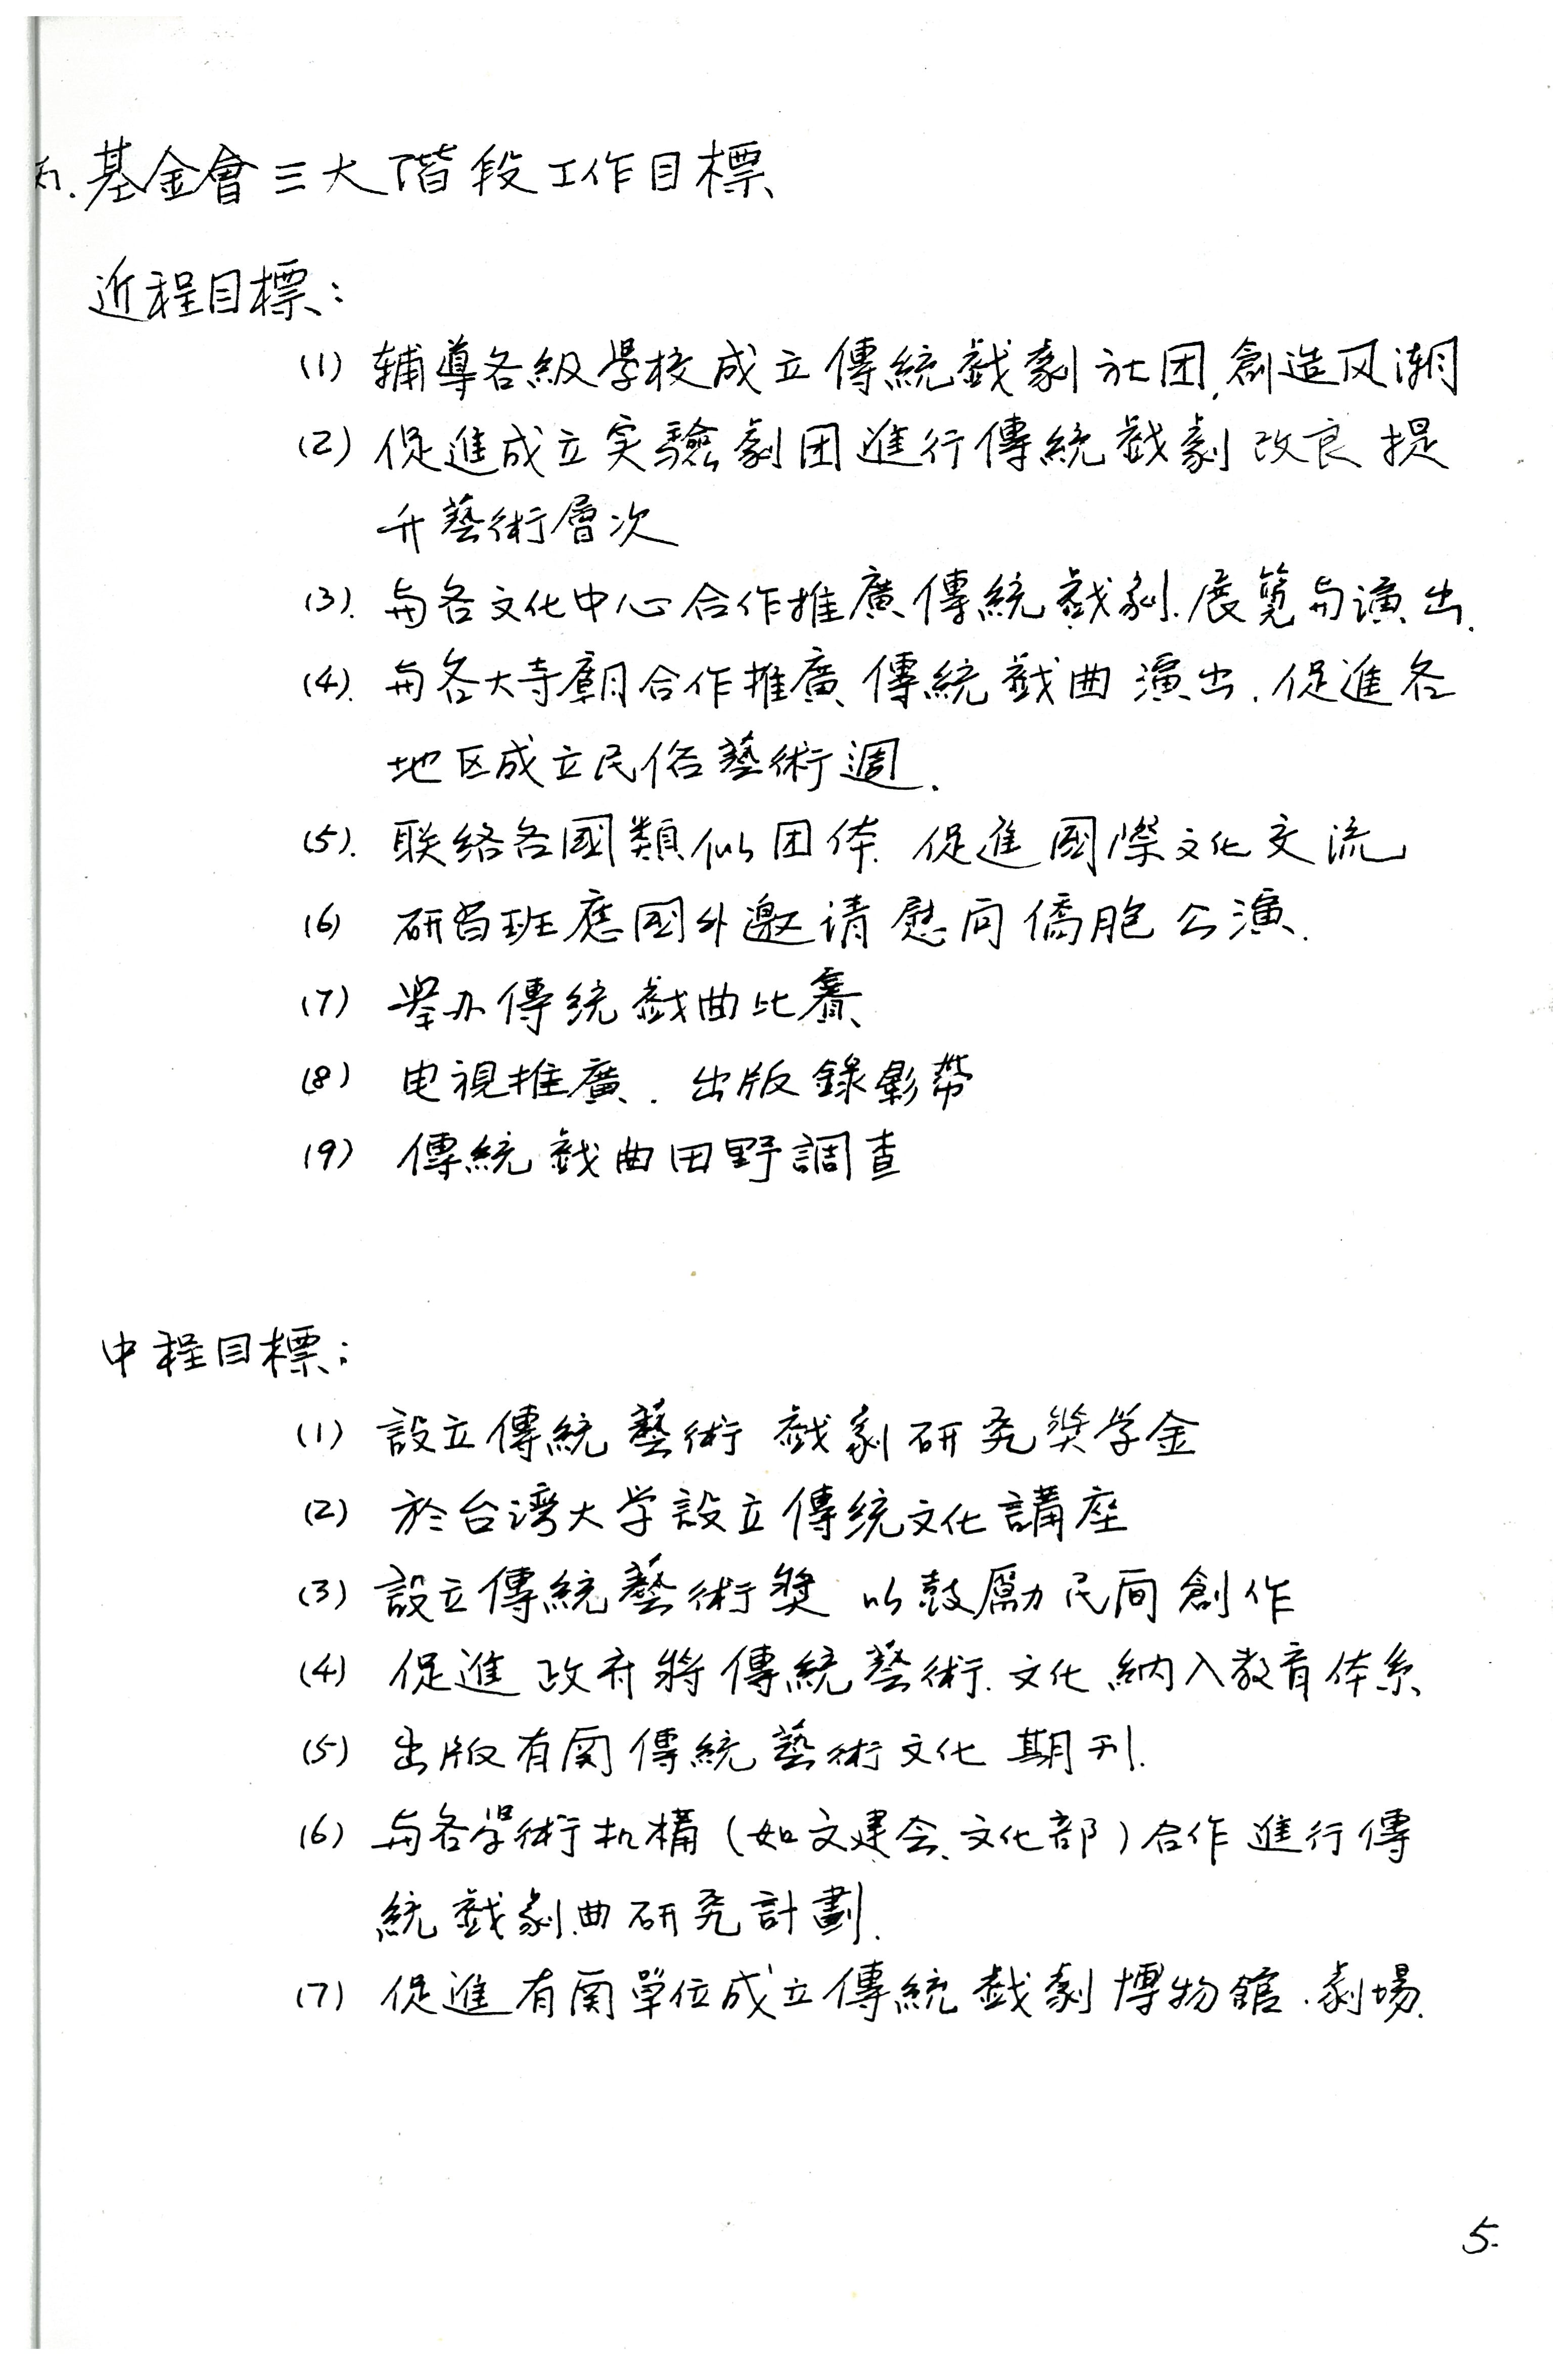 五.基金會三大階段工作目標
近程目標:
(1) 辅導各級學校成立傳統戲劇社团,創造风潮
(2) 促進成立实驗劇团進行傳統戲劇改良提
升藝術層次
(3). 与各文化中心合作推廣傳統戲劇.展覽与演出.
(4). 与各大寺廟合作推廣傳統戲曲演出.促進各
地区成立民俗藝術週.
(5). 联络各國類似团体.促進國際文化交流
(6) 研習班應國外邀请慰问僑胞公演.
(7) 舉办傳統戲曲比賽
(8) 电視推廣.出版錄影帶
(9) 傳統戲曲田野調查
中程目標:
(1) 設立傳統藝術 戲劇研究獎学金
(2) 於台湾大学設立傳統文化講座
(3) 設立傳統藝術獎 以鼓勵民间創作
(4) 促進政府將傳統藝術.文化納入教育体系
(5) 出版有関傳統藝術文化期刊.
(6) 与各學術机構(如文建会、文化部)合作進行傳
統戲劇.曲研究計劃.
(7) 促進有関單位成立傳統戲劇博物館.劇場.
5.